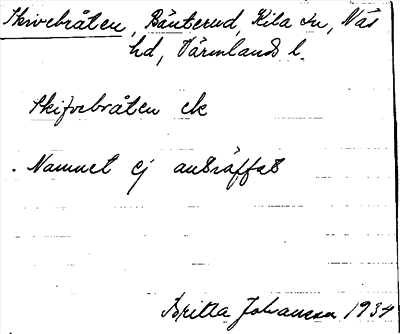 Skivebråten, Bänterud, Kila sn, Näs
hd, Värmlands l.
Skifvebråten ek
. Namnet ej anträffat
Britta Johansson 1934